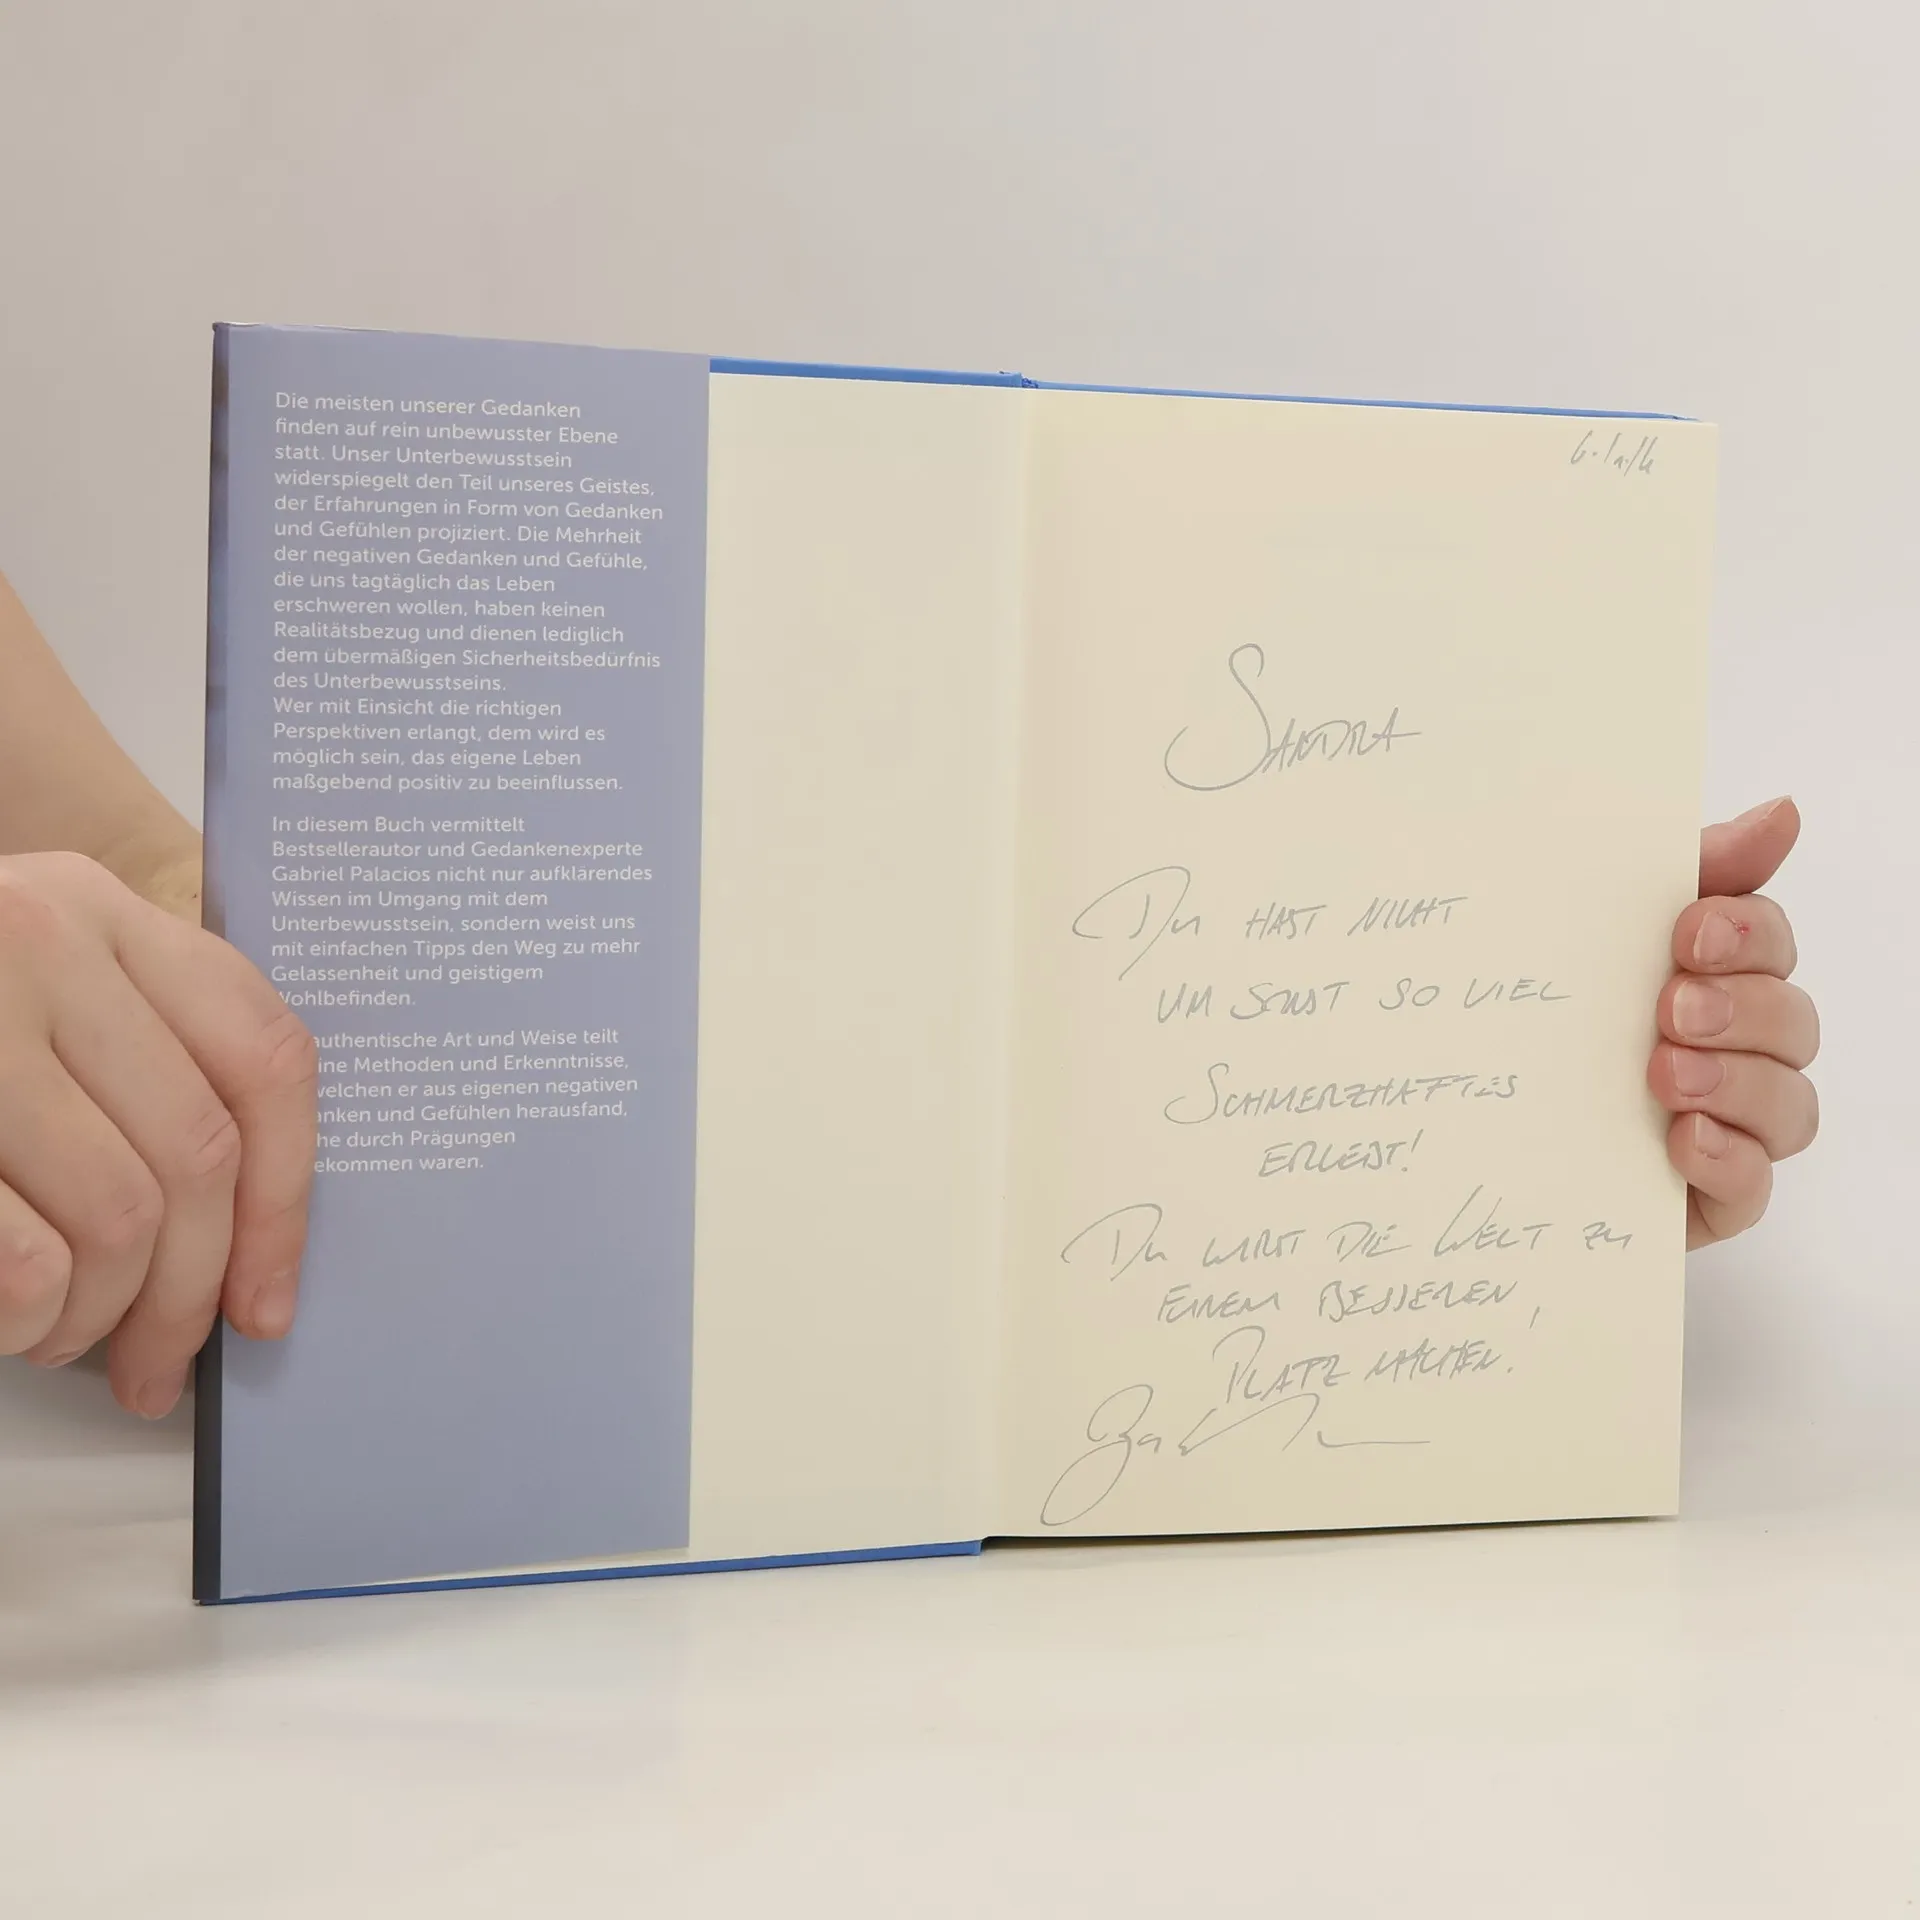 Die meisten unserer Gedanken
finden auf rein unbewusster Ebene
statt. Unser Unterbewusstsein
widerspiegelt den Teil unseres Geistes,
der Erfahrungen in Form von Gedanken
und Gefühlen projiziert. Die Mehrheit
der negativen Gedanken und Gefühle,
die uns tagtäglich das Leben
erschweren wollen, haben keinen
Realitätsbezug und dienen lediglich
dem übermäßigen Sicherheitsbedürfnis
des Unterbewusstseins.
Wer mit Einsicht die richtigen
Perspektiven erlangt, dem wird es
möglich sein, das eigene Leben
maßgebend positiv zu beeinflussen.
In diesem Buch vermittelt
Bestsellerautor und Gedankenexperte
Gabriel Palacios nicht nur aufklärendes
Wissen im Umgang mit dem
Unterbewusstsein, sondern weist uns
mit einfachen Tipps den Weg zu mehr
Gelassenheit und geistigem
Wohlbefinden.
authentische Art und Weise teilt
ine Methoden und Erkenntnisse,
welchen er aus eigenen negativen
anken und Gefühlen herausfand,
he durch Prägungen
ekommen waren.
SANDRA
DU HAST NICHT
UM SONST SO VIEL
SCHMERZHAFTES
ERLEBT!
DU WIRST DIE WELT ZU
EINEM BESSEREN
PLATZ MACHEN!